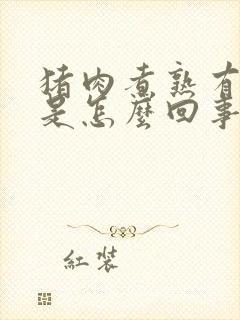 猪肉煮熟有
是怎麼回事
紅裝